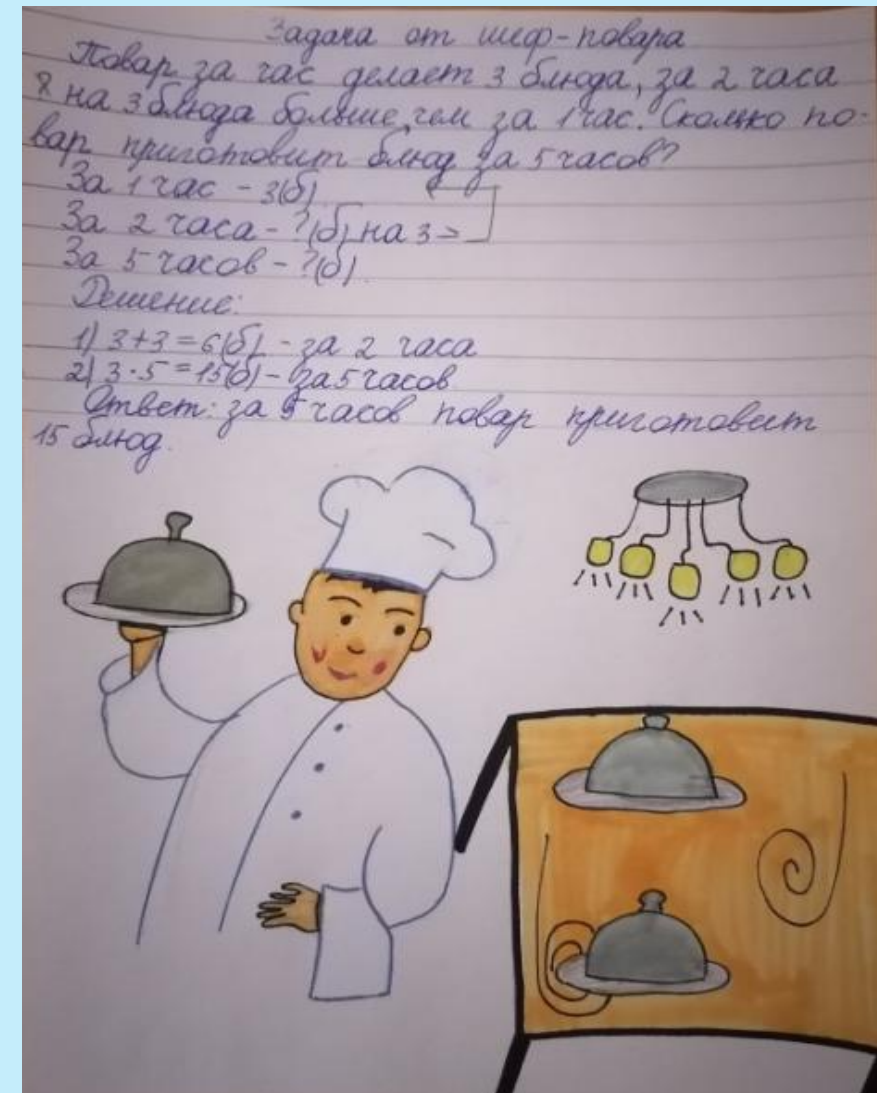 Задача от шеф-повара
Повар за час делает 3 блюда, за 2 часа
на 3 блюда больше, чем за 1 час. Сколько по-
вар приготовит блюд за 5 часов?
За 1 час - 3(б)
За 2 часа - ?(б) на 3 >
За 5 часов - ?(б)
Решение:
1) 3+3=6(б) - за 2 часа
2) 3·5=15(б) - за 5 часов
Ответ: за 5 часов повар приготовит
15 блюд.